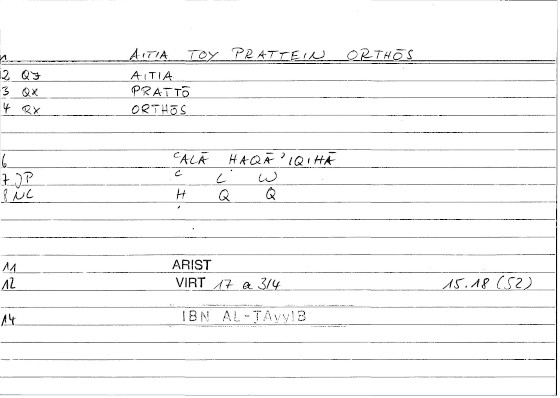 1 AITIA TOY PRATTEIN ORTHŌS
2 QZ AITIA
3 QX PRATTŌ
4 QX ORTHŌS
6 ʿALĀ ḤAQĀʾIQIHĀ
7 JP ʿ L W
8 NL Ḥ Q Q
11 ARIST
12 VIRT 17 a 3/4 15.18 (52)
14 IBN AL-ṬAyyIB